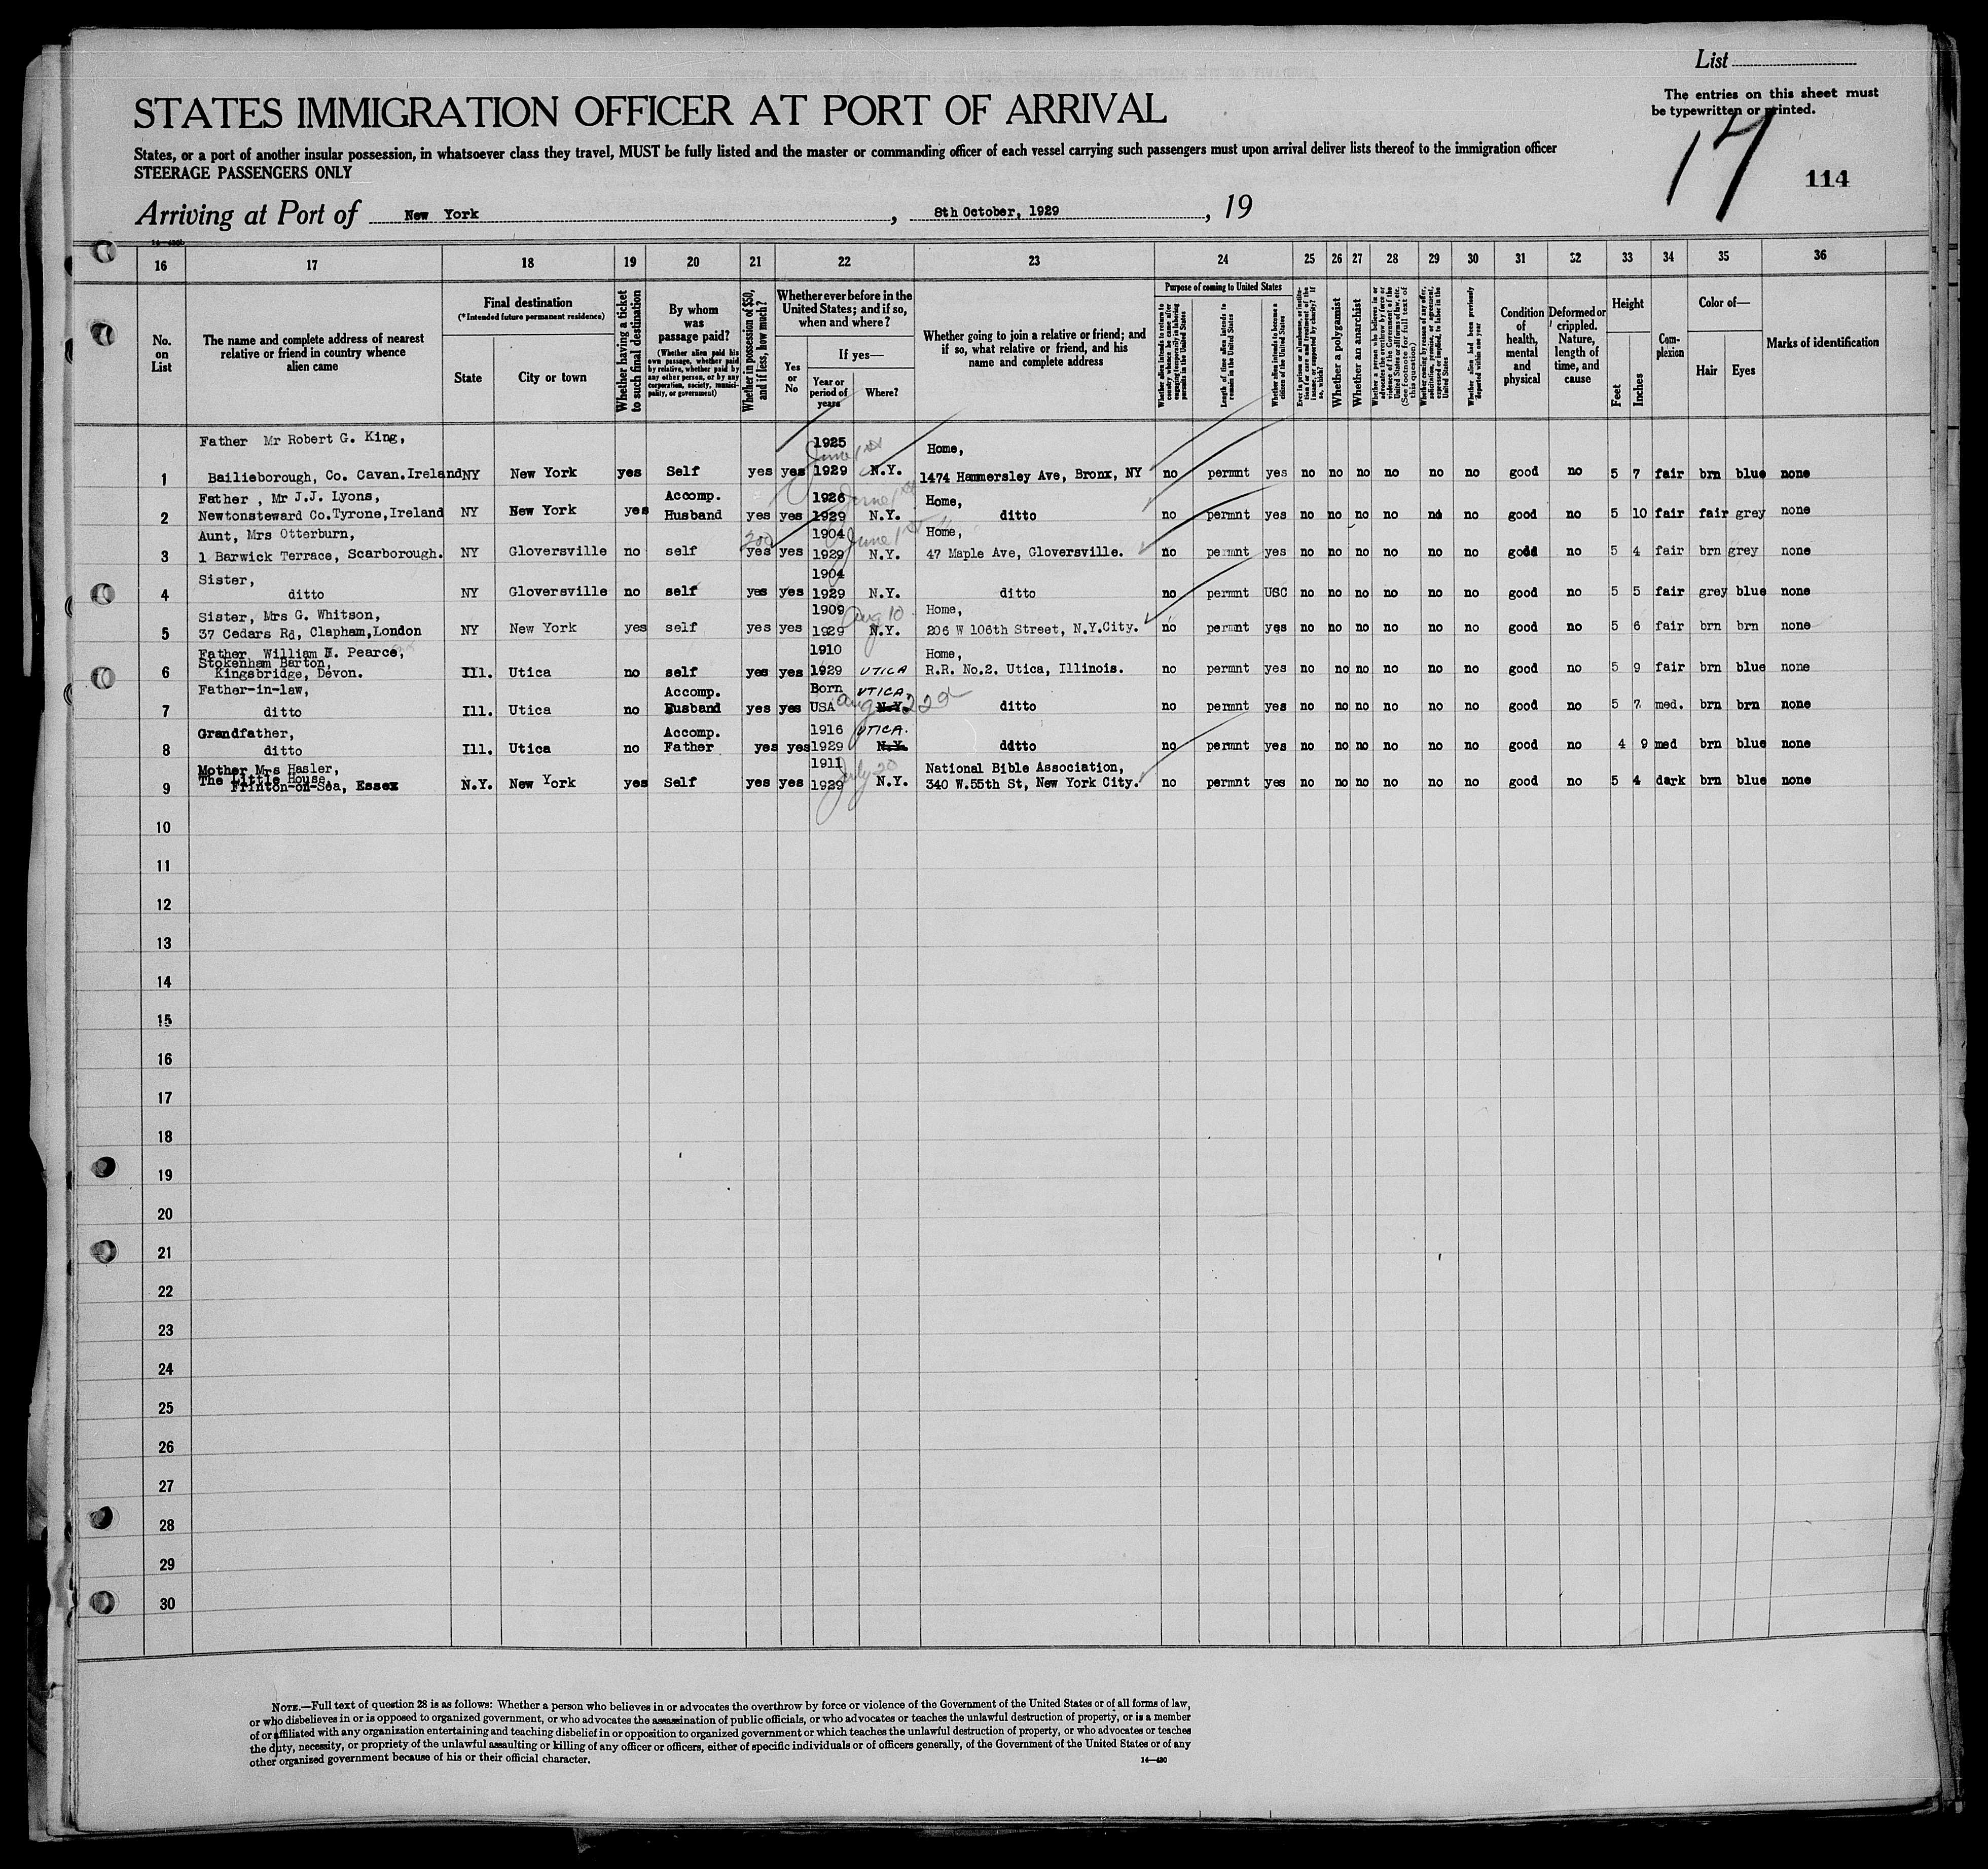 List
The entries on this sheet must
be typewritten or printed.
17
114
STATES IMMIGRATION OFFICER AT PORT OF ARRIVAL
States, or a port of another insular possession, in whatsoever class they travel, MUST be fully listed and the master or commanding officer of each vessel carrying such passengers must upon arrival deliver lists thereof to the immigration officer
STEERAGE PASSENGERS ONLY
Arriving at Port of New York, 8th October, 1929, 19
16 17 18 19 20 21 22 23 24 25 26 27 28 29 30 31 32 33 34 35 36
No. on List
The name and complete address of nearest relative or friend in country whence alien came
Final destination
(*Intended future permanent residence)
State
City or town
Whether having a ticket to such final destination
By whom was passage paid?
(Whether alien paid his own passage, whether paid by relative, whether paid by any other person, or by any corporation, society, municipality, or government)
Whether in possession of $50, and if less, how much?
Whether ever before in the United States; and if so, when and where?
Yes or No
If yes—
Year or period of years
Where?
Whether going to join a relative or friend; and if so, what relative or friend, and his name and complete address
Purpose of coming to United States
Whether alien intends to return to country whence he came after engaging temporarily in laboring pursuits in the United States
Length of time alien intends to remain in the United States
Whether alien intends to become a citizen of the United States
Ever in prison or almshouse, or institution for care and treatment of the insane, or supported by charity? If so, which?
Whether a polygamist
Whether an anarchist
Whether a person who believes in or advocates the overthrow by force or violence of the Government of the United States or all forms of law, etc. (See footnote for full text of this question)
Whether coming by reason of any offer, solicitation, promise, or agreement, expressed or implied, to labor in the United States
Whether alien had been previously deported within one year
Condition of health, mental and physical
Deformed or crippled. Nature, length of time, and cause
Height
Feet
Inches
Complexion
Color of—
Hair
Eyes
Marks of identification
Father Mr Robert G. King, 1925 June 1st Home,
1 Bailieborough, Co. Cavan. Ireland NY New York yes Self yes yes 1929 N.Y. 1474 Hammersley Ave, Bronx, NY no permnt yes no no no no no no good no 5 7 fair brn blue none
Father, Mr J.J. Lyons, Accomp. 1926 June 1st Home,
2 Newtonsteward Co.Tyrone, Ireland NY New York yes Husband yes yes 1929 N.Y. ditto no permnt yes no no no no no no good no 5 10 fair fair grey none
Aunt, Mrs Otterburn, 300 1904 June 1st Home,
3 1 Barwick Terrace, Scarborough. NY Gloversville no self yes yes 1929 N.Y. 47 Maple Ave, Gloversville. no permnt yes no no no no no no good no 5 4 fair brn grey none
Sister, 1904
4 ditto NY Gloversville no self yes yes 1929 N.Y. ditto no permnt USC no no no no no no good no 5 5 fair grey blue none
Sister, Mrs G. Whitson, 1909 Aug 10 Home,
5 37 Cedars Rd, Clapham, London NY New York yes self yes yes 1929 N.Y. 206 W 106th Street, N.Y.City. no permnt yes no no no no no no good no 5 6 fair brn brn none
Father William H. Pearce, 1910 Home,
Stokenham Barton,
6 Kingsbridge, Devon. Ill. Utica no self yes yes 1929 UTICA R.R. No.2. Utica, Illinois. no permnt yes no no no no no no good no 5 9 fair brn blue none
Father-in-law, Accomp. Born UTICA.
7 ditto Ill. Utica no Husband yes yes USA Aug 22d N.Y. ditto no permnt yes no no no no no no good no 5 7 med. brn brn none
Grandfather, Accomp. 1916 UTICA.
8 ditto Ill. Utica no Father yes yes 1929 N.Y. ddtto no permnt yes no no no no no no good no 4 9 med brn blue none
Mother Mrs Hasler, 1911 July 20 National Bible Association,
The Little House,
9 Frinton-on-Sea, Essex N.Y. New York yes Self yes yes 1929 N.Y. 340 W.55th St, New York City. no permnt yes no no no no no no good no 5 4 dark brn blue none
10
11
12
13
14
15
16
17
18
19
20
21
22
23
24
25
26
27
28
29
30
NOTE.—Full text of question 28 is as follows: Whether a person who believes in or advocates the overthrow by force or violence of the Government of the United States or of all forms of law,
or who disbelieves in or is opposed to organized government, or who advocates the assassination of public officials, or who advocates or teaches the unlawful destruction of property, or is a member
of or affiliated with any organization entertaining and teaching disbelief in or opposition to organized government or which teaches the unlawful destruction of property, or who advocates or teaches
the duty, necessity, or propriety of the unlawful assaulting or killing of any officer or officers, either of specific individuals or of officers generally, of the Government of the United States or of any
other organized government because of his or their official character.
14—430